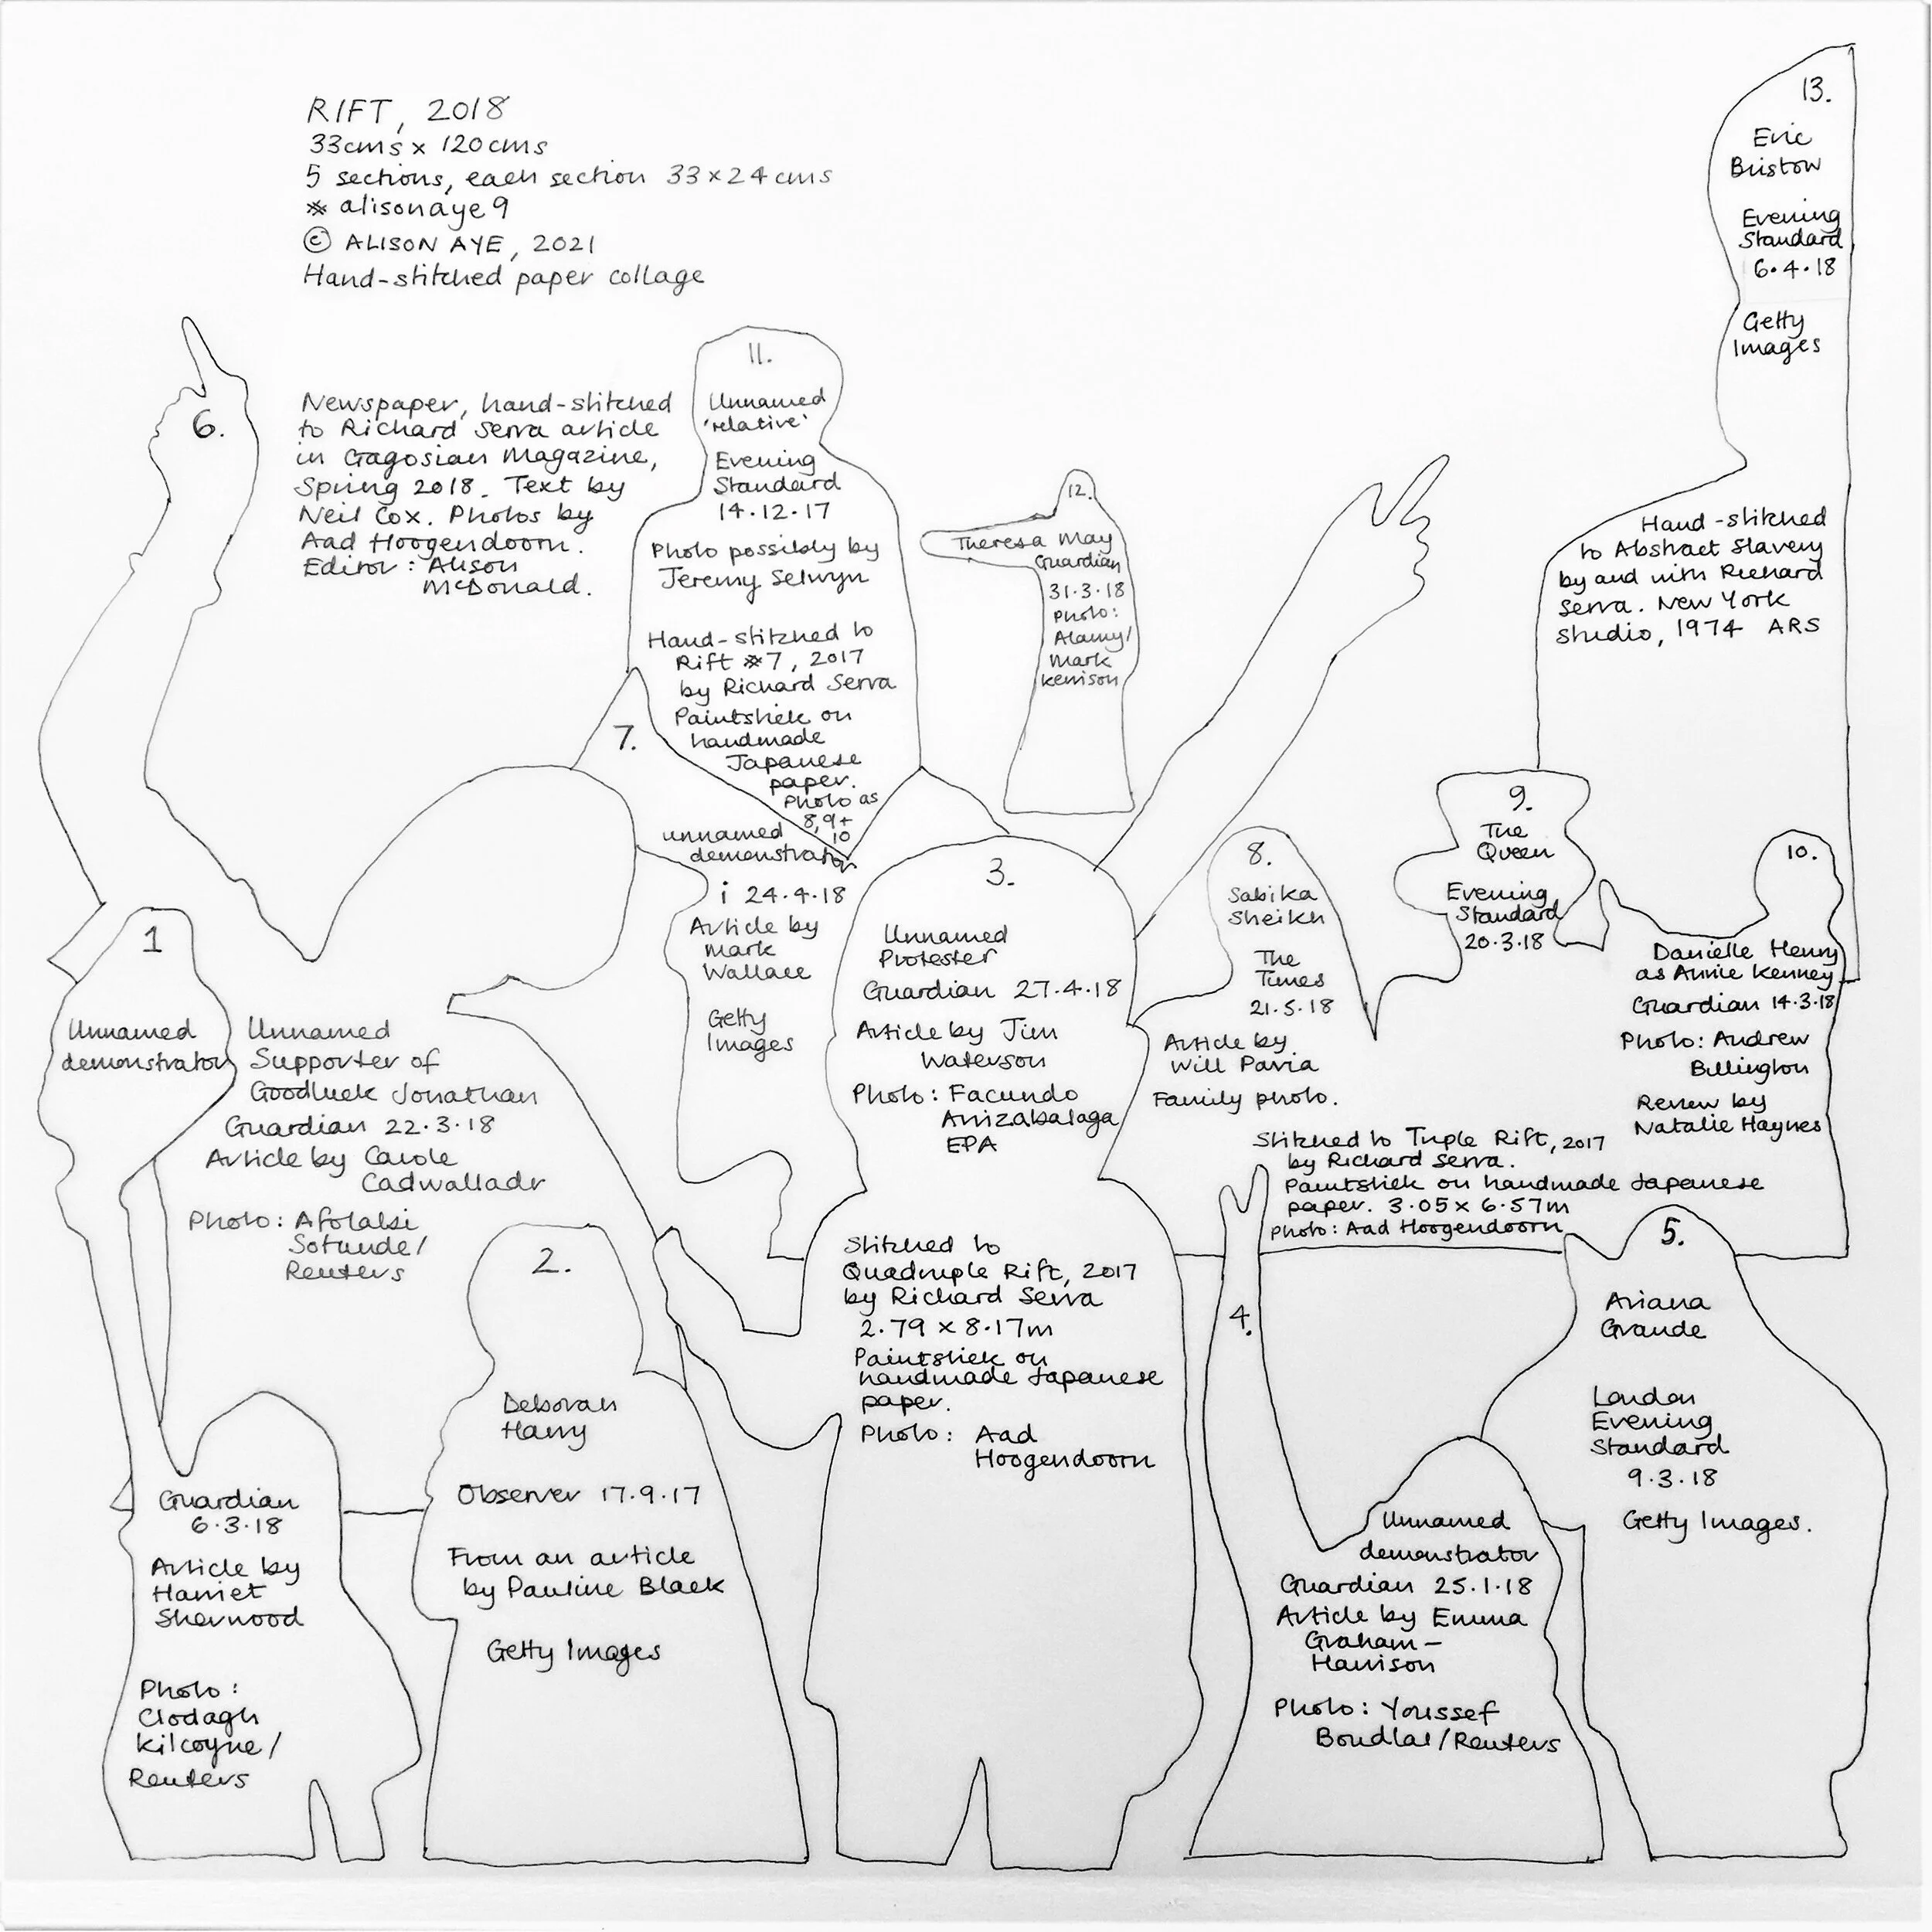 RIFT, 2018
33cms x 120cms
5 sections, each section 33x24cms
# alisonaye9
© ALISON AYE, 2021
Hand-stitched paper collage
6.
Newspaper, hand-stitched
to Richard Serra article
in Gagosian Magazine,
Spring 2018. Text by
Neil Cox. Photos by
Aad Hoogendoorn.
Editor: Alison
McDonald.
11.
Unnamed
'relative'
Evening
Standard
14.12.17
Photo possibly by
Jeremy Selwyn
Hand-stitched to
Rift #7, 2017
by Richard Serra
Paintstick on
handmade
Japanese
paper.
Photo as
8, 9 +
10
12.
Theresa May
Guardian
31.3.18
Photo:
Alamy/
Mark
Kerrison
13.
Eric
Bristow
Evening
Standard
6.4.18
Getty
Images
Hand-stitched
to Abstract Slavery
by and with Richard
Serra. New York
Studio, 1974 ARS
7.
unnamed
demonstrator
i 24.4.18
Article by
Mark
Wallace
Getty
Images
3.
Unnamed
Protester
Guardian 27.4.18
Article by Jim
Waterson
Photo: Facundo
Arrizabalaga
EPA
Stitched to
Quadruple Rift, 2017
by Richard Serra
2.79 x 8.17m
Paintstick on
handmade Japanese
paper.
Photo: Aad
Hoogendoorn
8.
Sabika
Sheikh
The
Times
21.5.18
Article by
Will Pavia
Family photo.
9.
The
Queen
Evening
Standard
20.3.18
10.
Danielle Henry
as Annie Kenney
Guardian 14.3.18
Photo: Andrew
Billington
Review by
Natalie Haynes
Stitched to Triple Rift, 2017
by Richard Serra.
Paintstick on handmade Japanese
paper. 3.05 x 6.57m
Photo: Aad Hoogendoorn
1
Unnamed
demonstrator
Guardian
6.3.18
Article by
Harriet
Sherwood
Photo:
Clodagh
Kilcoyne/
Reuters
Unnamed
Supporter of
Goodluck Jonathan
Guardian 22.3.18
Article by Carole
Cadwalladr
Photo: Afolabi
Sotunde/
Reuters
2.
Deborah
Harry
Observer 17.9.17
From an article
by Pauline Black
Getty Images
4.
Unnamed
demonstrator
Guardian 25.1.18
Article by Emma
Graham-
Harrison
Photo: Youssef
Boudlal/Reuters
5.
Ariana
Grande
London
Evening
Standard
9.3.18
Getty Images.